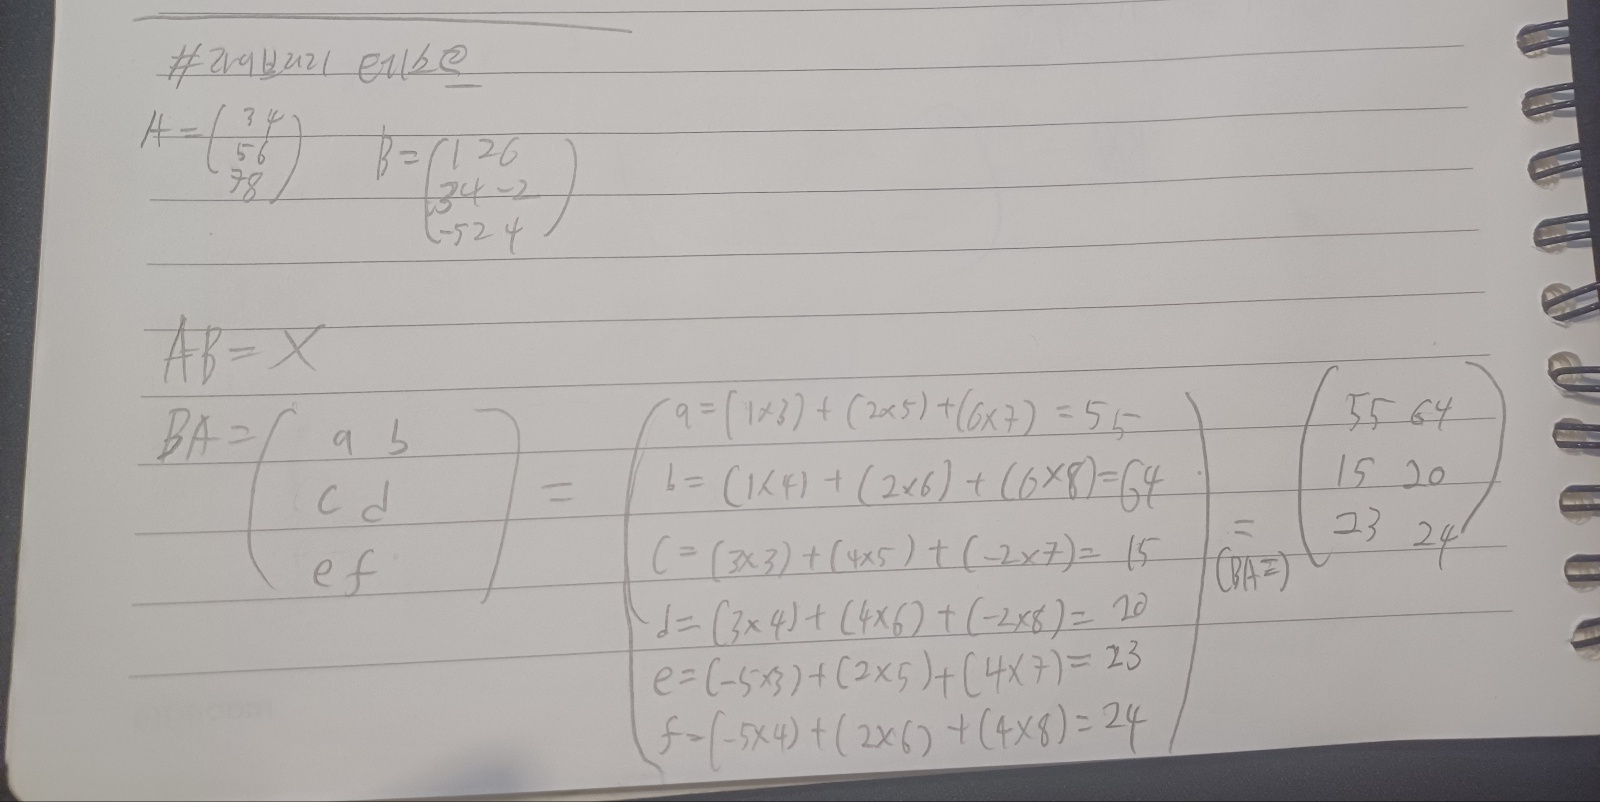 A = ( 3 4
5 6
7 8 )
B = ( 1 2 6
3 4 -2
-5 2 4 )
AB = X
BA = ( a b
c d
e f )
=
( a = (1×3) + (2×5) + (6×7) = 55
b = (1×4) + (2×6) + (6×8) = 64
c = (3×3) + (4×5) + (-2×7) = 15
d = (3×4) + (4×6) + (-2×8) = 20
e = (-5×3) + (2×5) + (4×7) = 23
f = (-5×4) + (2×6) + (4×8) = 24 )
=
(BA=)
( 55 64
15 20
23 24 )